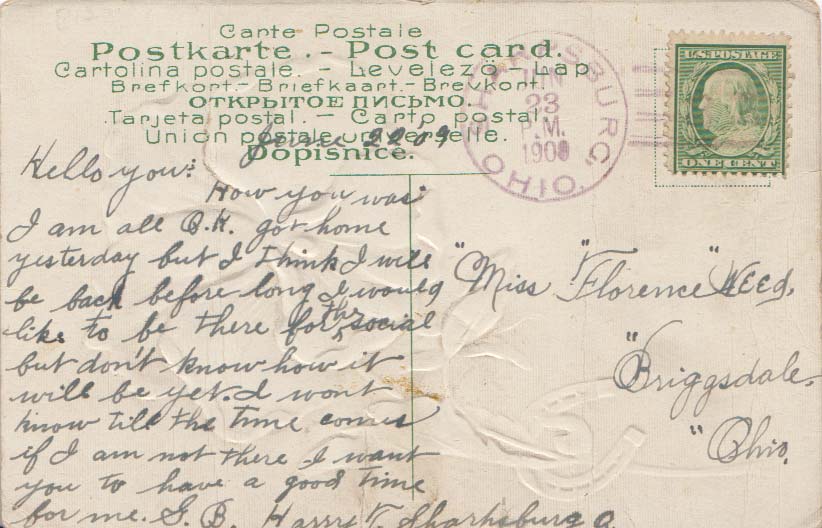 Carte Postale
Postkarte. - Post card.
Cartolina postale. - Levelező-Lap
Brefkort.-Briefkaart.-Brevkort.
ОТКРЫТОЕ ПИСЬМО.
Tarjeta postal. - Carto postal.
Union postale universelle.
Dopisnice.
June 22 09
SHARPSBURG, OHIO
JUN
23
P.M.
1909
U.S. POSTAGE
ONE CENT
Hello you:
How you was
I am all O.K. got home
yesterday but I think I will
be back before long I would
like to be there for the social
but don't know how it
will be yet. I wont
know till the time comes
if I am not there I want
you to have a good time
for me. G.B. Harry T. Sharpsburg O.
"Miss "Florence "Weed,
"Briggsdale,
"Ohio.